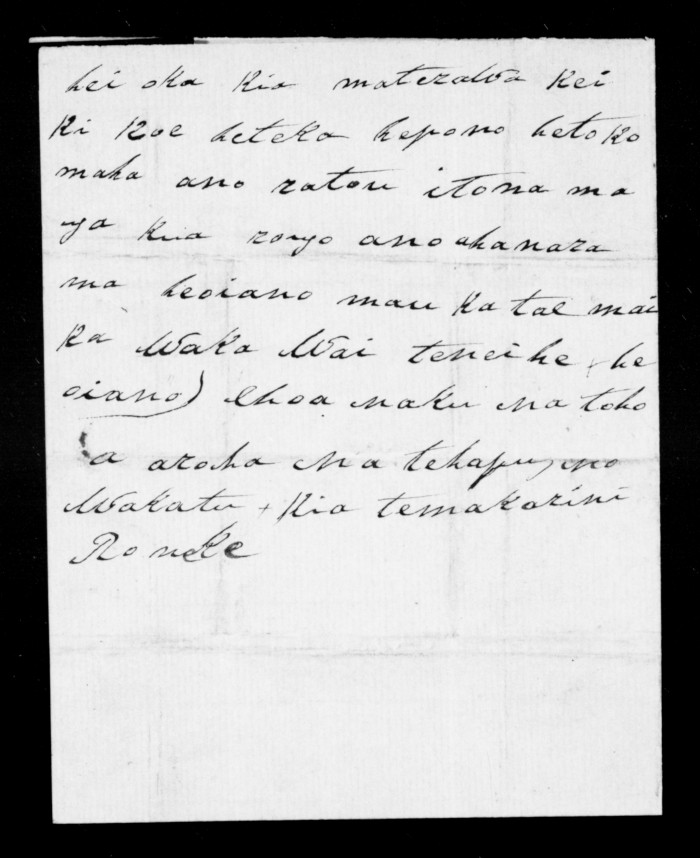 hei oka kia materawa kei
ki koe heteka hepono hetoko
maha ano ratou itona ma
ya kia rongo anoahanara
ma heoiano mau ka tae mai
ka Waka Wai tenei he + he
oiano) Ehoa naku na toho
a aroha Na tehapu, no
Wakatu + Kia temakarini